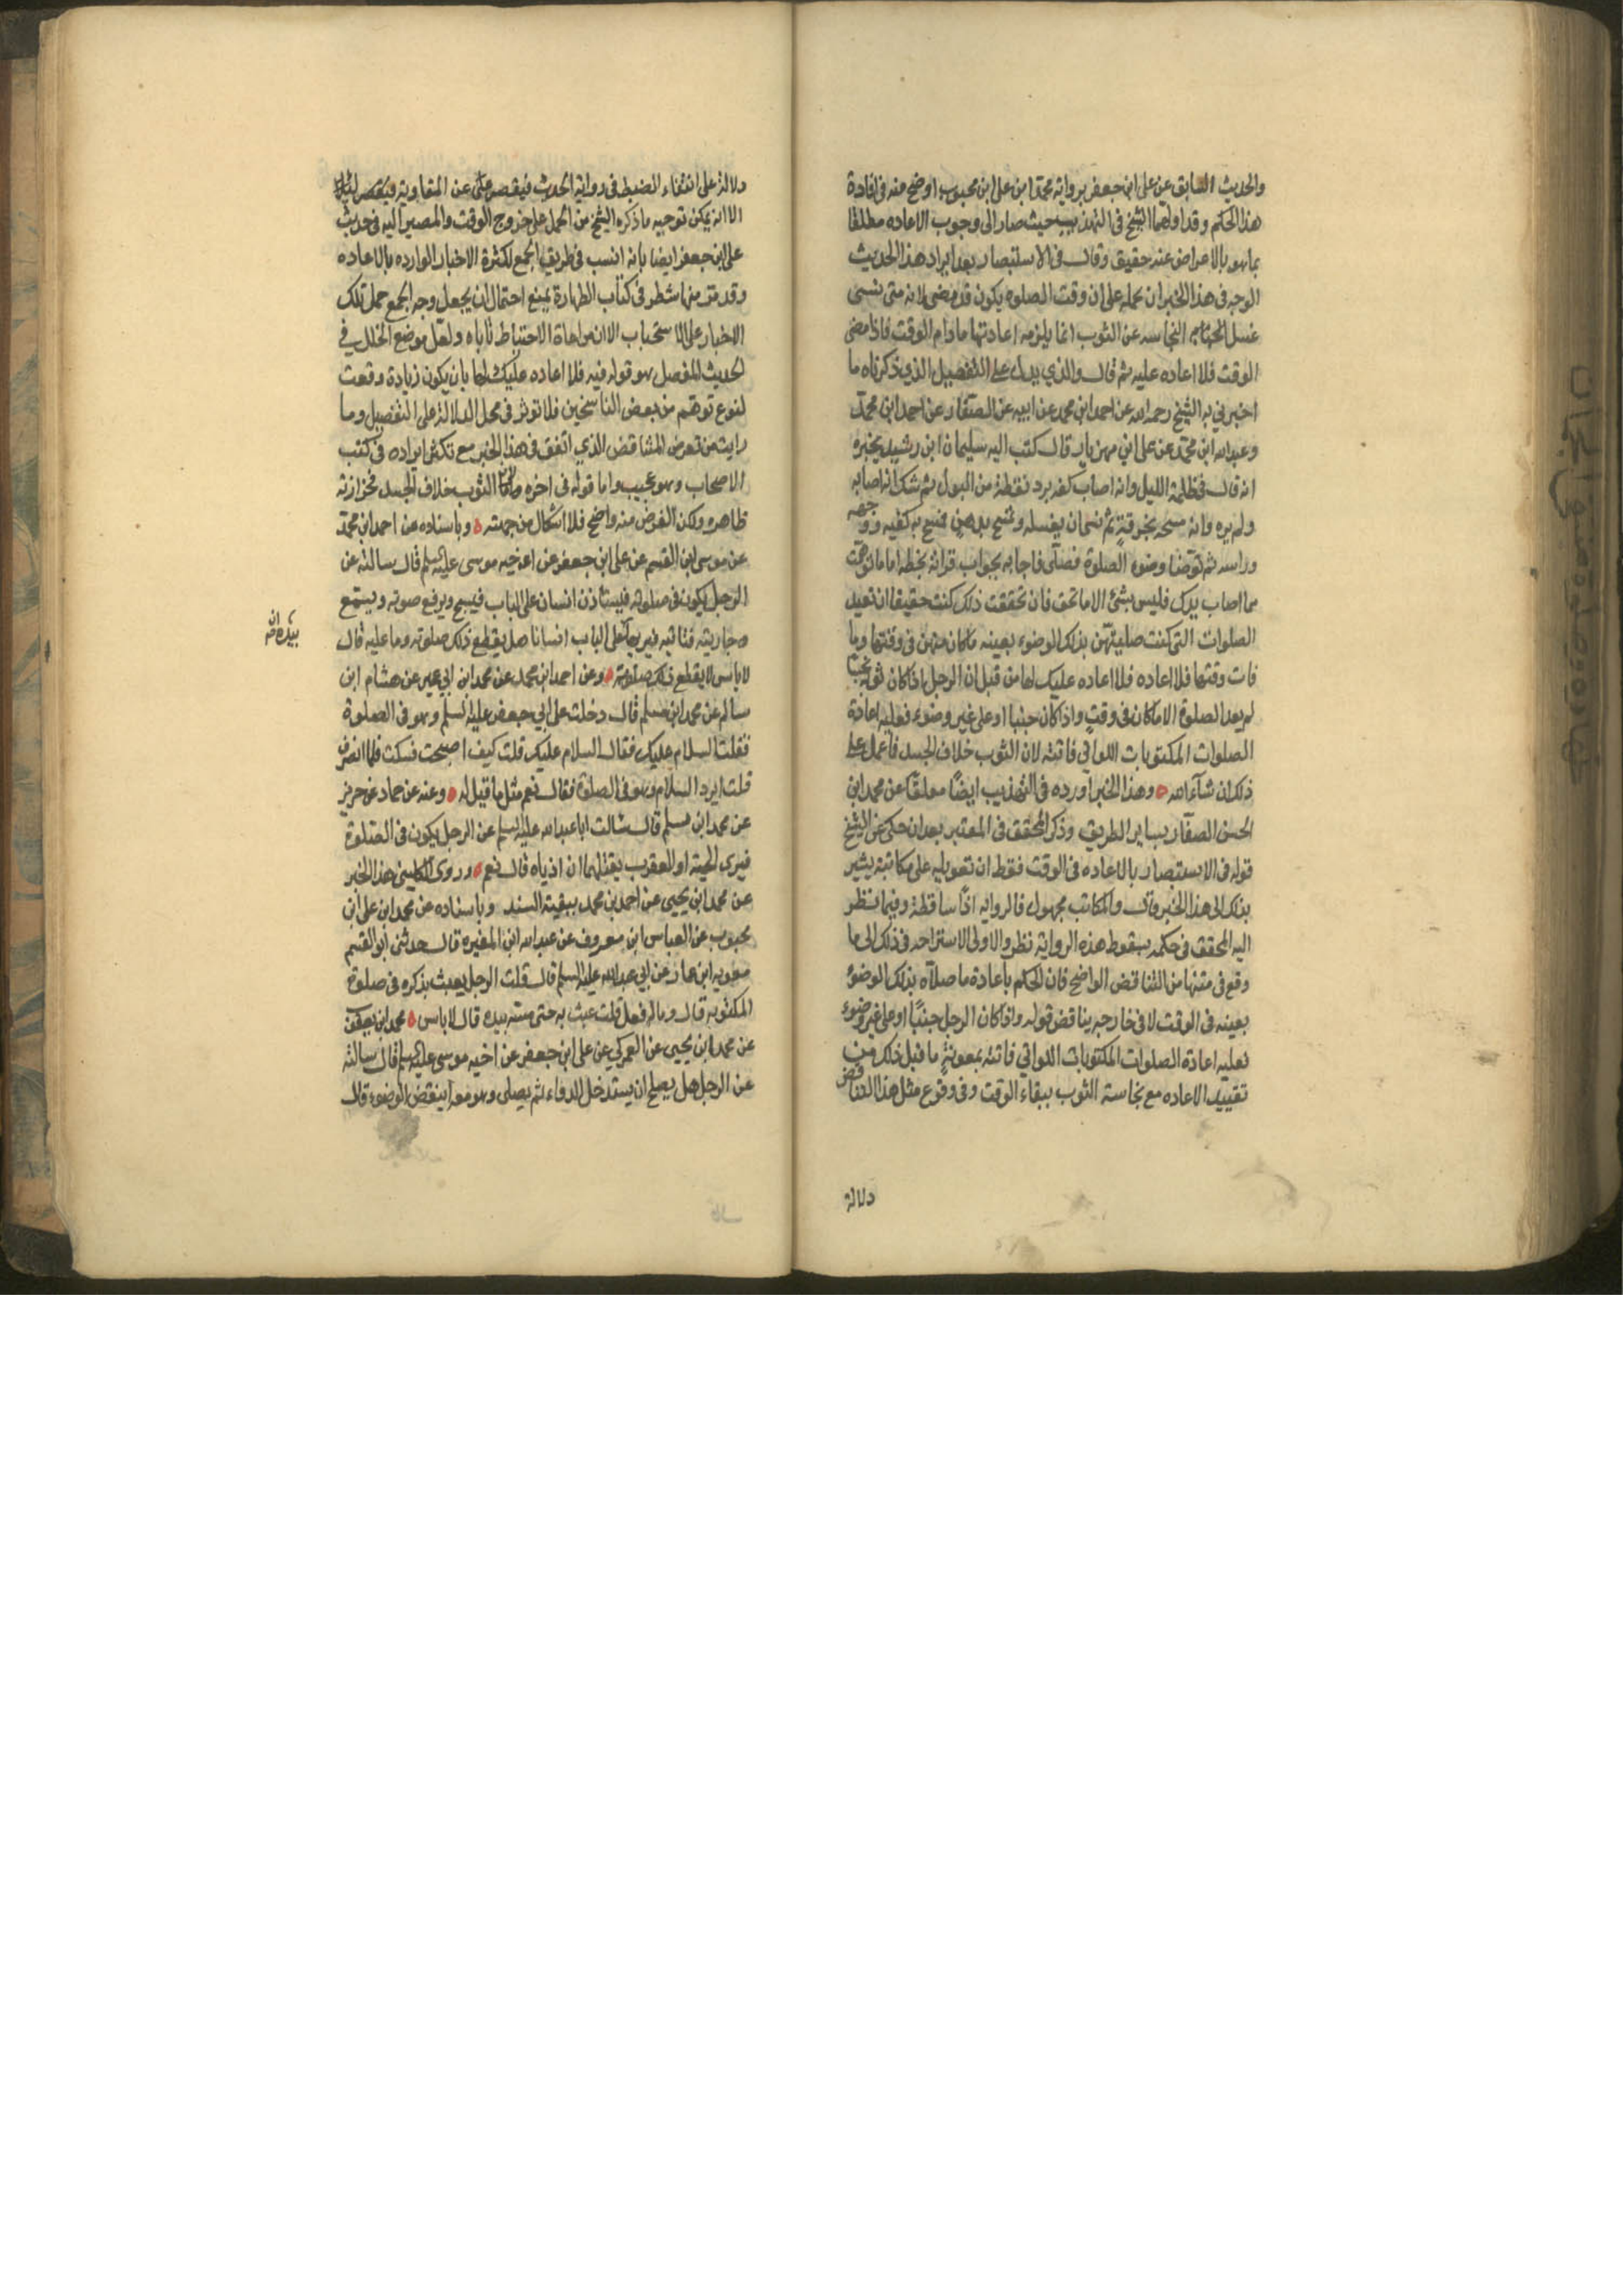 والحديث السابق عن على ابن جعفر برواية محمد ابن على ابن محبوب اوضح منه فى افادة
هذا الحكم وقد اولهما الشيخ فى التهذيب حيث صار الى وجوب الاعاده مطلقا
بما هو بالاعراض عنه حقيق وقال فى الاستبصار بعد ايراد هذا الحديث
الوجه فى هذا الخبر ان نحمله على ان وقت الصلوه يكون قد مضى لانه متى نسى
غسل النجاسه عن الثوب انما يلزمه اعادتها مادام الوقت فاذا مضى
الوقت فلا اعاده عليه ثم قال والذي يدل على التفصيل الذي ذكرناه ما
اخبرني به الشيخ رحمه الله عن احمد ابن محمد عن ابيه عن الصفار عن احمد ابن محمد
وعبد الله ابن محمد عن على ابن مهزيار قال كتب اليه سليمان ابن رشيد يخبره
انه قال فى ظلمة الليل وانه اصاب كفه برد نقطة من البول لم يشك انه اصابه
ولم يره وانه مسحه بخرقة ثم نسى ان يغسله وتمسح بدهن فمسح به كفيه ووجهه
وراسه ثم توضا وضوء الصلوة فصلى فاجابه بجواب قراته بخطه اما ما توهمت
مما اصاب يدك فليس بشئ الا ما تحقق فان تحققت ذلك كنت حقيقا ان تعيد
الصلوات التى كنت صليتهن بذلك الوضوء بعينه ما كان منهن فى وقتها وما
فات وقتها فلا اعاده فلا اعاده عليك لها من قبل ان الرجل اذا كان ثوبه نجسا
لم يعد الصلوة الا ما كان فى وقت واذا كان جنبا او على غير وضوء فعليه اعادة
الصلوات المكتوبات اللواتي فاتته لان الثوب خلاف الجسد فاعمل على
ذلك ان شاء الله وهذا الخبر اورده فى التهذيب ايضا معلقا عن محمد ابن
الحسن الصفار بساير الطريق وذكر المحقق فى المعتبر بعد ان حكى عن الشيخ
قوله فى الاستبصار بالاعاده فى الوقت فقط ان تعويله على مكاتبة يشير
بذلك الى هذا الخبر وقال والمكاتب مجهول فالروايه اذا ساقطة وفيما نظر
اليه المحقق فى حكمه بسقوط هذه الرواية نظر والاولى الاستراحه فى ذلك الى ما
وقع فى متنها من التناقض الواضح فان الحكم باعادة ما صلاه بذلك الوضوء
بعينه فى الوقت لا فى خارجه يناقض قوله واذا كان الرجل جنبا او على غير وضوء
فعليه اعادة الصلوات المكتوبات اللواتي فاتته بمعونة ما قبل ذلك من
تقييد الاعاده مع نجاسة الثوب ببقاء الوقت وفى وقوع مثل هذا التناقض
دلالة
دلالة على انتفاء الضبط فى رواية الحديث فيقصر متى عن المقاومة
الا انه يمكن توجيه ما ذكره الشيخ من الحمل على خروج الوقت والمصير اليه فى حديث
على ابن جعفر ايضا بانه انسب فى طريق الجمع لكثرة الاخبار الوارده بالاعاده
وقد مر منها شطر فى كتاب الطهارة يمنع احتمال ان يجعل وجه الجمع حمل تلك
الاخبار على الاستحباب الا ان مراعاة الاحتياط تاباه ولعل موضع الخلل فى
الحديث المفصل هو قوله فيه فلا اعاده عليك لها بان يكون زيادة وقعت
لنوع توهم من بعض الناسخين فلا تؤثر فى محل الدلالة على التفصيل وما
رايت من تعرض للتناقض الذي اتفق فى هذا الخبر مع تكثر ايراده فى كتب
الاصحاب وهو عجيب واما قوله فى اخره الثوب خلاف الجسد فحزازته
ظاهره ولكن الغرض منه واضح فلا اشكال من جهته وباسناده عن احمد ابن محمد
عن موسى ابن القسم عن على ابن جعفر عن اخيه موسى عليه السلم قال سالته عن
الرجل يكون فى صلوته فيستاذن انسان على الباب فيسبح ويرفع صوته ويسمع
جاريته فتاتيه فيريها بيده ان على الباب انسانا هل يقطع ذلك صلوته وما عليه قال
لا باس لا يقطع ذلك صلوته وعن احمد ابن محمد عن محمد ابن ابي عمير عن هشام ابن
سالم عن محمد ابن مسلم قال دخلت على ابي جعفر عليه السلم وهو فى الصلوة
فقلت السلام عليك فقال السلام عليك قلت كيف اصبحت فسكت فلما انصرف
قلت ايرد السلام وهو فى الصلوة فقال نعم مثل ما قيل له وعنه عن حماد عن حريز
عن محمد ابن مسلم قال سالت ابا عبد الله عليه السلم عن الرجل يكون فى الصلوة
فيرى الحية او العقرب يقتلهما ان اذياه قال نعم وروى الكليني هذا الخبر
عن محمد ابن يحيى عن احمد بن محمد ببقية السند وباسناده عن محمد ابن على ابن
محبوب عن العباس ابن معروف عن عبد الله ابن المغيره قال حدثني ابو القسم
معويه ابن عمار عن ابي عبد الله عليه السلم قال قلت الرجل يعبث بذكره فى صلوة
المكتوبه قال وما له فعل قلت عبث به حتى مسه بيده قال لا باس محمد ابن يعقوب
عن محمد ابن يحيى عن العمركي عن على ابن جعفر عن اخيه موسى عليه السلم قال سالته
عن الرجل هل يصلح ان يستدخل الدواء ثم يصلى وهو معه اينقض الوضوء قال